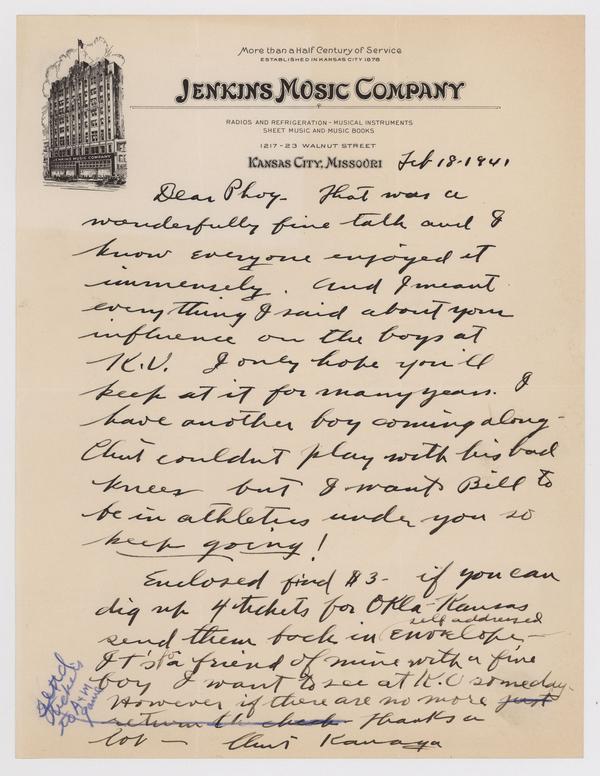 More than a Half Century of Service
ESTABLISHED IN KANSAS CITY 1878
JENKINS MUSIC COMPANY
RADIOS AND REFRIGERATION - MUSICAL INSTRUMENTS
SHEET MUSIC AND MUSIC BOOKS
1217-23 WALNUT STREET
KANSAS CITY, MISSOURI Feb 18-1941
JENKINS MUSIC COMPANY
Dear Phog- That was a
wonderfully fine talk and I
know everyone enjoyed it
immensely. And I meant
everything I said about your
influence on the boys at
K.U. I only hope you'll
keep at it for many years. I
have another boy coming along-
Chet couldn't play with his bad
knees but I want Bill to
be in athletics under you so
keep going!
Enclosed find $3- if you can
dig up 4 tickets for Okla-Kansas
self addressed
send them back in envelope-
It's to a friend of mine with a fine
boy I want to see at K.U someday.
However if there are no more just
return the check Thanks a
lot - Chet
send
tickets
to